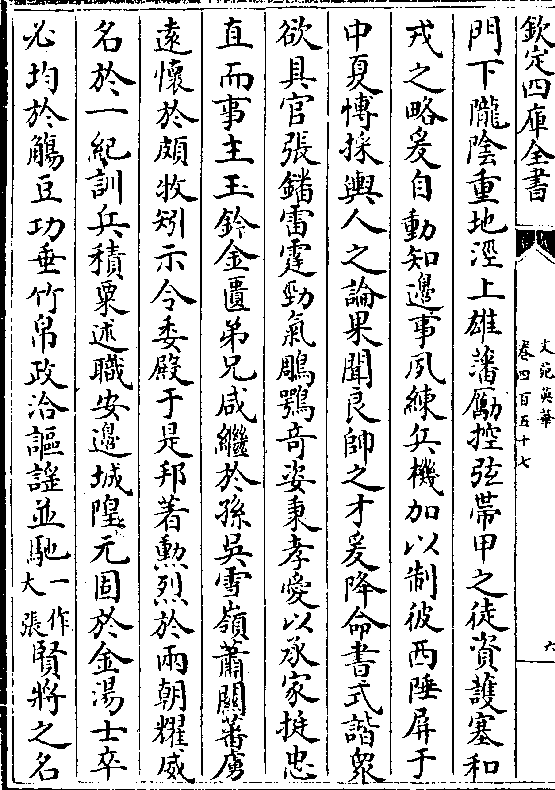 欽定四庫全書
文苑英華
卷四百五十七
六
門下隴陰重地涇上雄藩勵控弦帶甲之徒資護塞和
戎之略爰自動知邊事夙練兵機加以制彼西陲屏于
中夏慱採輿人之論果聞良帥之才爰降命書式諧衆
欲具官張鐇雷霆勁氣鵰鶚竒姿秉孝愛以承家挺忠
直而事主玉鈐金匱弟兄咸繼於孫吳雪嶺蕭關蕃虜
逺懷於頗牧矧示令委殿于是邦著勲烈於兩朝耀威
名於一紀訓兵積粟述職安邊城隍元固於金湯士卒
必均於觴豆功垂竹帛政洽謳謡並馳一作大張賢將之名